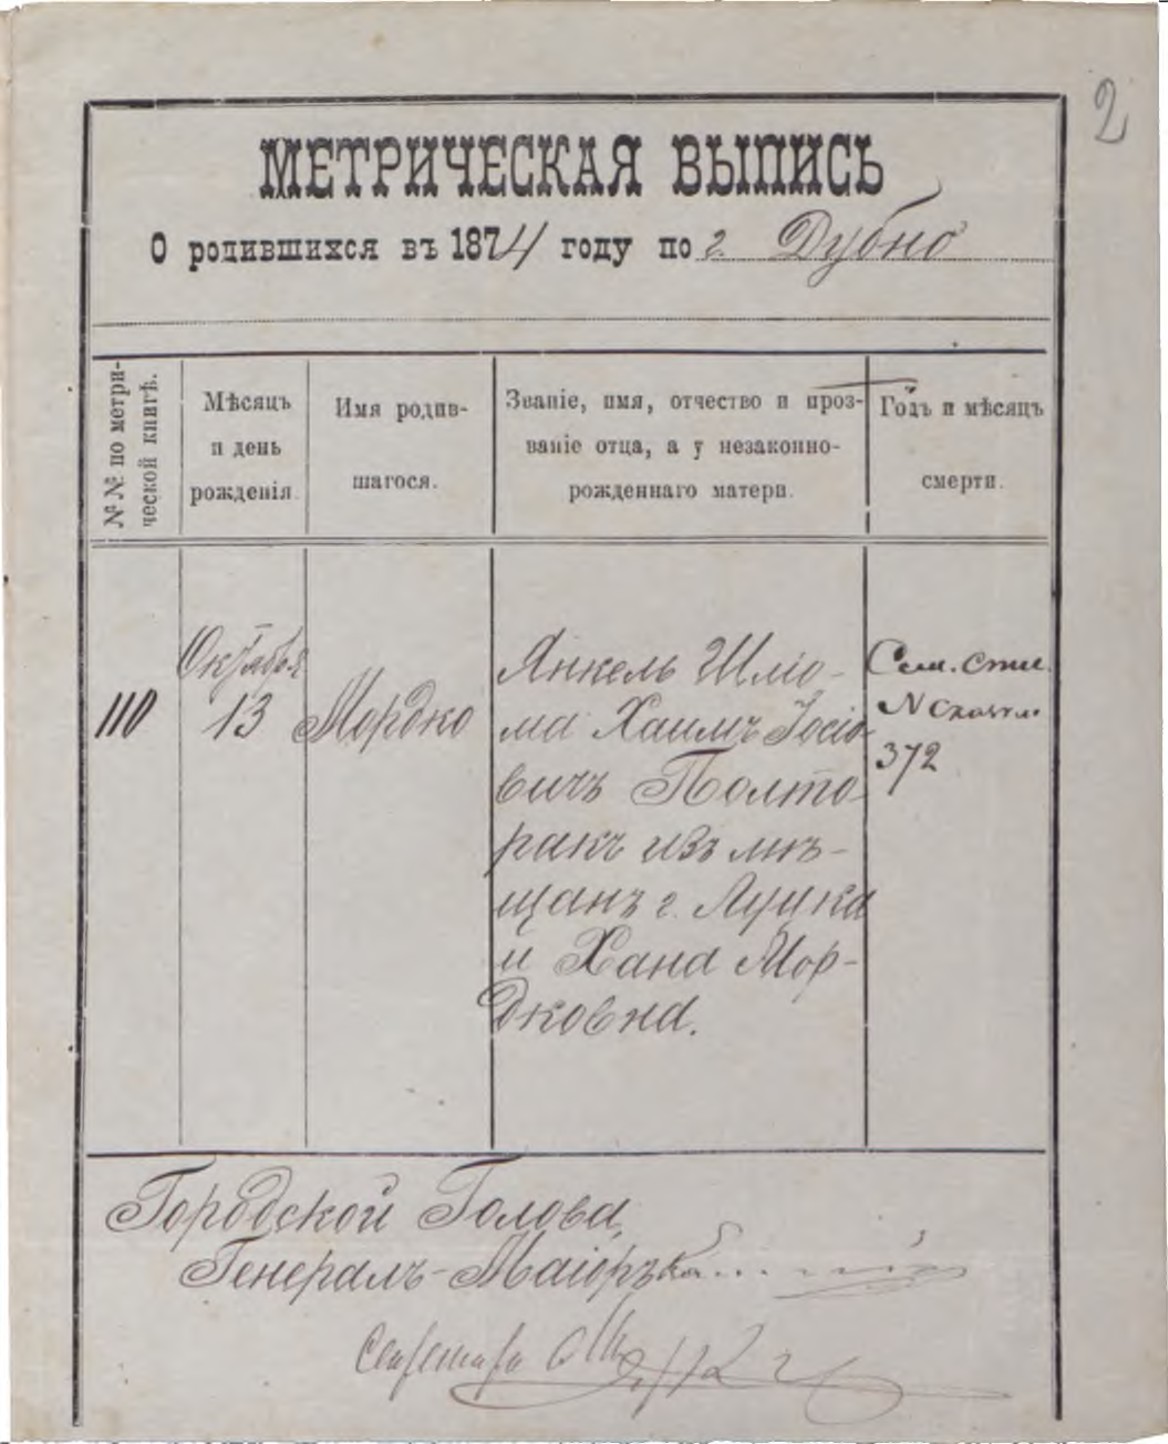 2
МЕТРИЧЕСКАЯ ВЫПИСЬ
О родившихся въ 1874 году по г. Дубно
№№ по метри-
ческой книгѣ.
Мѣсяцъ
и день
рожденія.
Имя родив-
шагося.
Званіе, имя, отчество и проз-
ваніе отца, а у незаконно-
рожденнаго матери.
Годъ и мѣсяцъ
смерти.
110
Октября
13
Мордко
Янкель Шліо-
ма Хаимъ Іосіо-
вичъ Полто-
ракъ изъ мѣ-
щанъ г. Луцка
и Хана Мор-
дковна.
Сем. спис.
N
372
Городской Голова,
Генералъ-Маіоръ
Секретарь